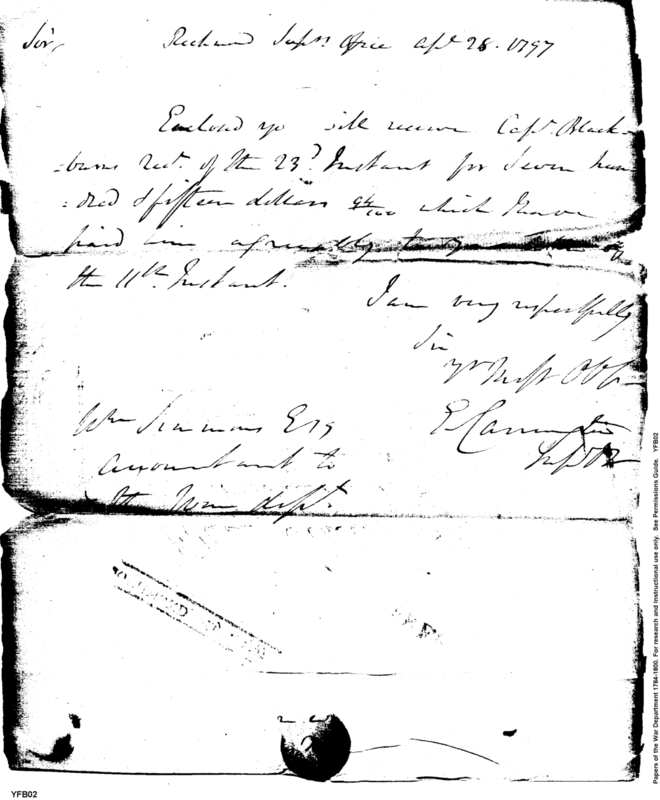 Sir, Richmond Supr. Office Apl. 28. 1797
Enclosed yo will receive Capt. Black-
-burns rect. of the 23d. Instant for Seven hun
-dred & fifteen dollars 94/100 which I have
paid him agreeably to your
the 11th. Instant.
I am very respectfully
Sir
yr Most Ob
Wm Simmons Esq
E Carrington
accountant to
the War dept.
Papers of the War Department 1784-1800. For research and instructional use only. See Permissions Guide. YFB02
YFB02